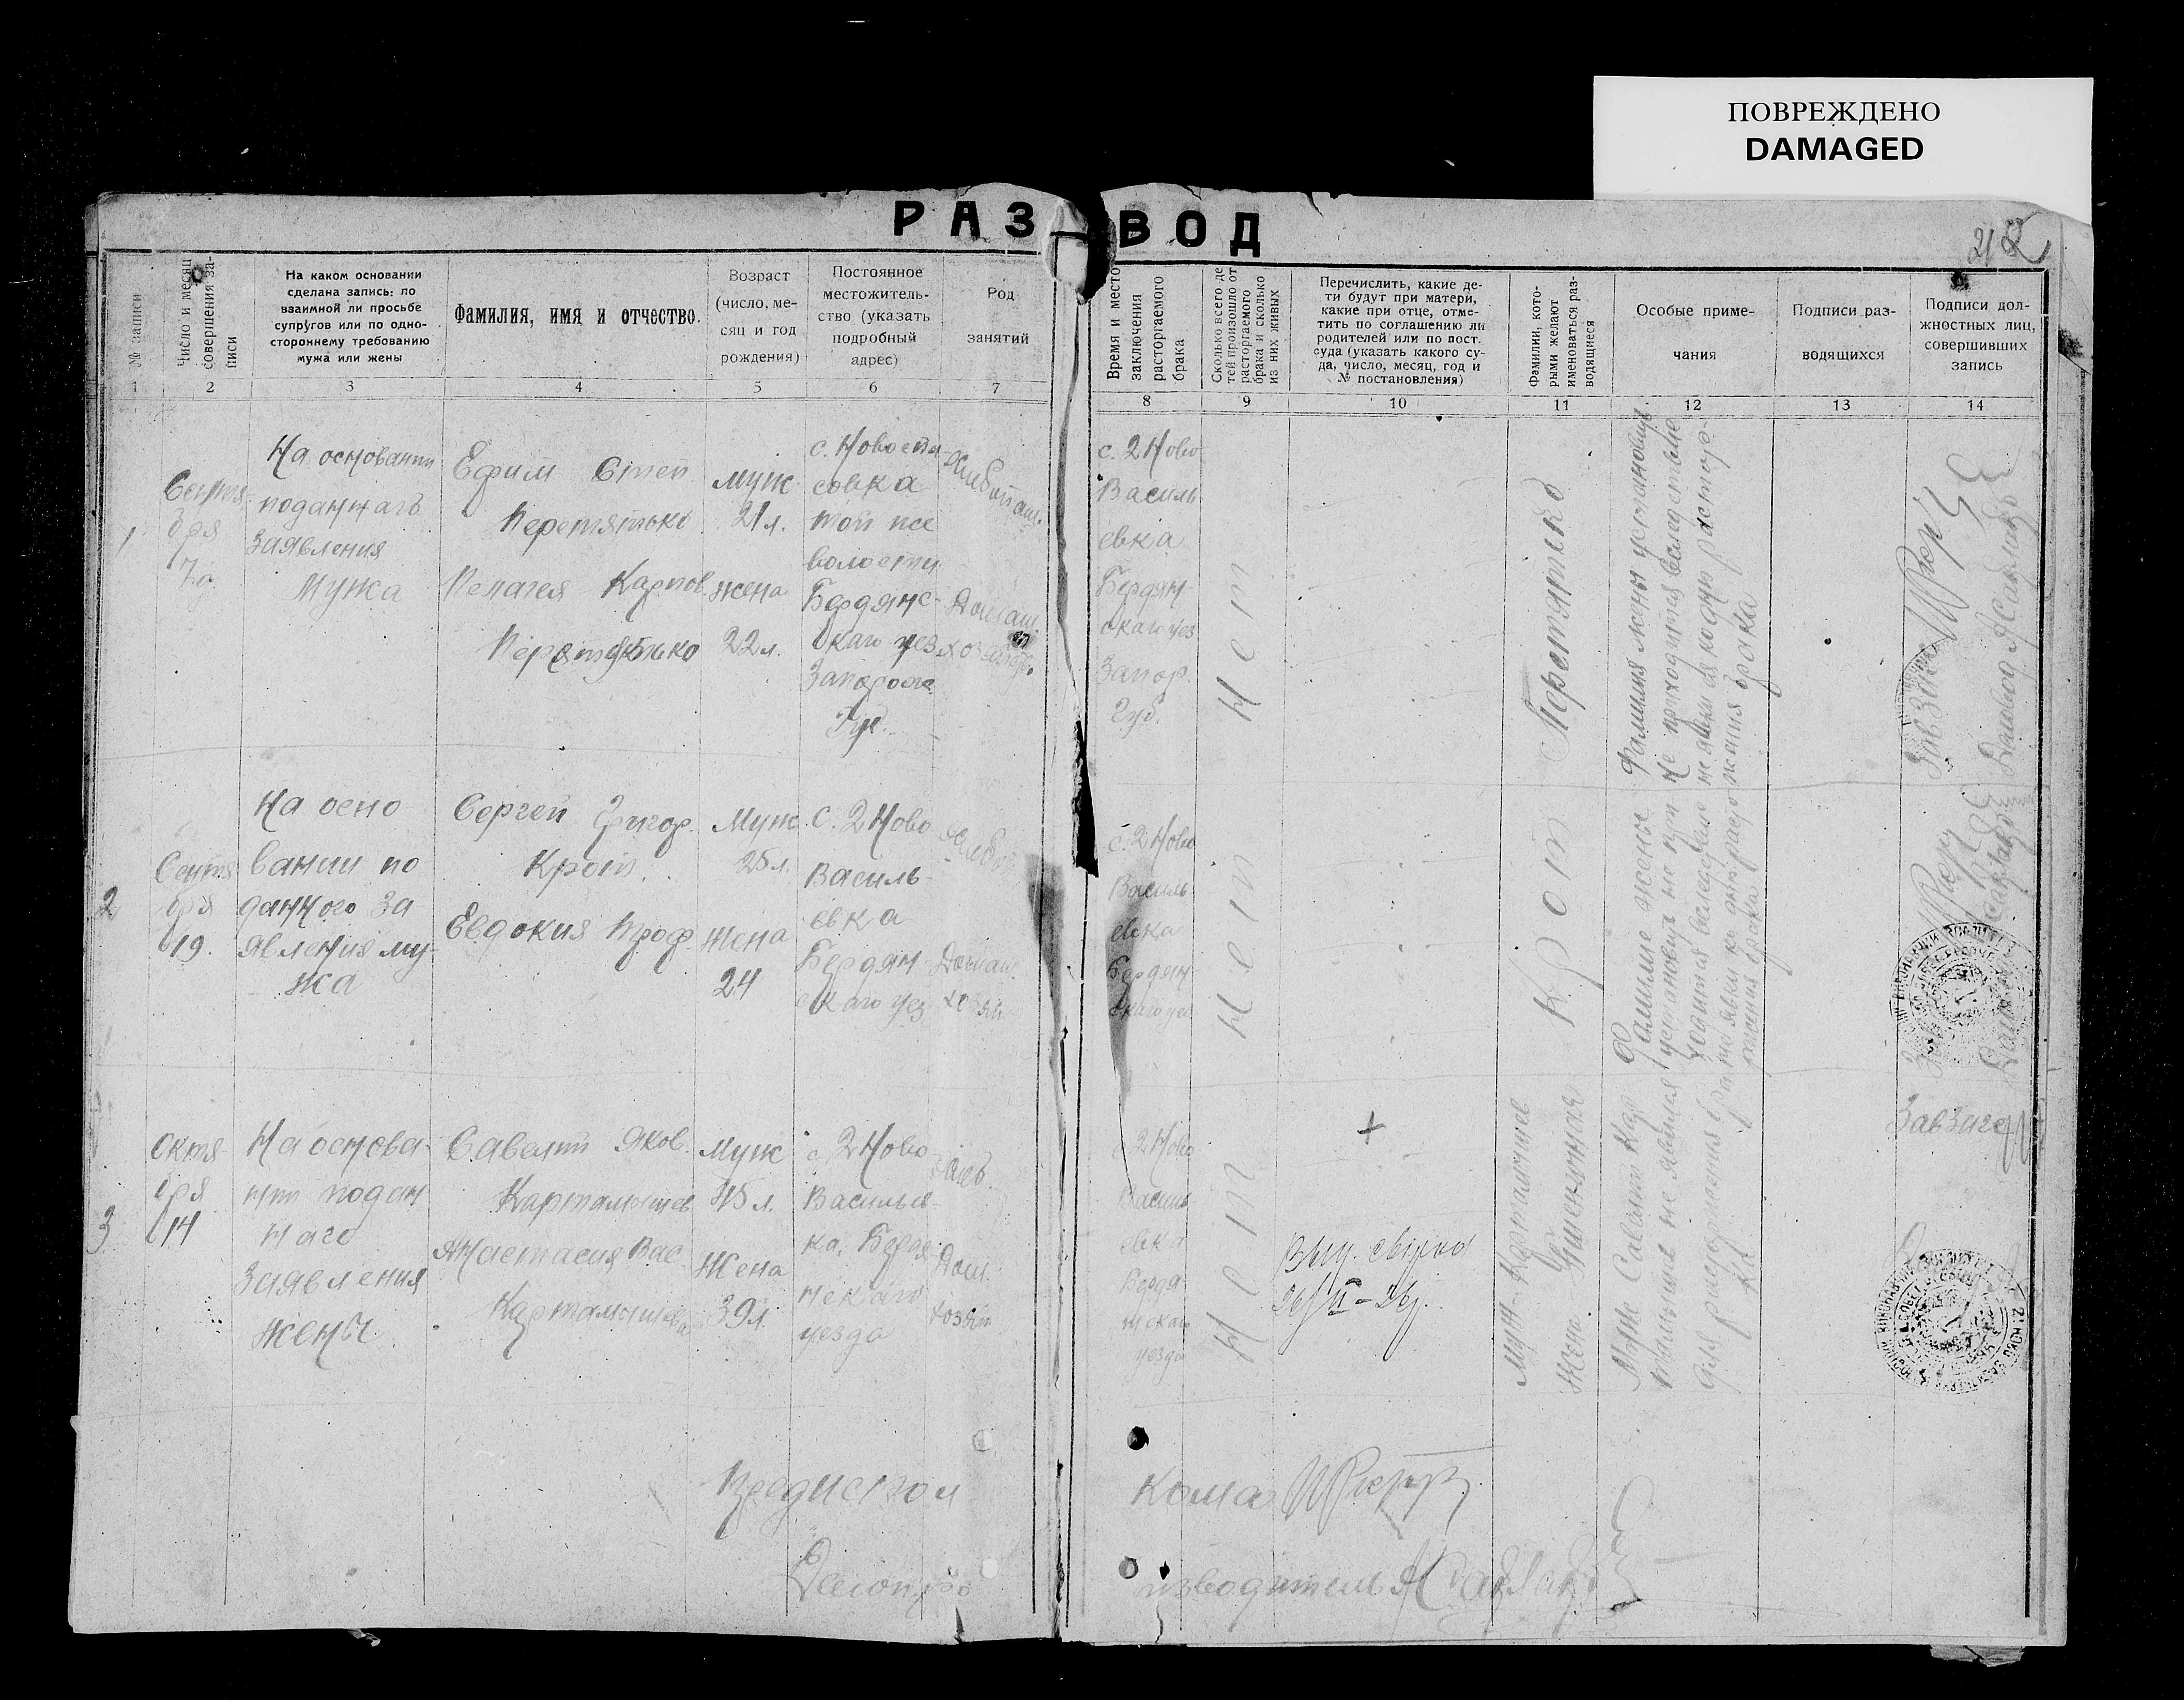 ПОВРЕЖДЕНО
DAMAGED
РАЗВОД
212
№ записи
Число и месяц
совершения за-
писи
На каком основании
сделана запись: по
взаимной ли просьбе
супругов или по одно-
стороннему требованию
мужа или жены
Фамилия, имя и отчество.
Возраст
(число, ме-
сяц и год
рождения)
Постоянное
местожитель-
ство (указать
подробный
адрес)
Род
занятий
Время и место
заключения
расторгаемого
брака
Сколько всего де
тей произошло от
расторгаемого
брака и сколько
из них живых
Перечислить, какие де-
ти будут при матери,
какие при отце, отме-
тить по соглашению ли
родителей или по пост.
суда (указать какого су-
да, число, месяц, год и
№ постановления)
Фамилии, кото-
рыми желают
именоваться раз-
водящиеся
Особые приме-
чания
Подписи раз-
водящихся
Подписи дол-
жностных лиц,
совершивших
запись
1 2 3 4 5 6 7 8 9 10 11 12 13 14
1
Сентя
бря
7го
На основании
поданнаго
заявления
Мужа
Ефим Степ
Перетятько
Пелагея Карпов.
Перетятько
Муж
21 л.
жена
22 л.
с. Новоспа
совка
той же
волости
Бердянс-
каго уез
Запорож
Губ.
Домаш.
с. 2 Ново
Василь
евка
Бердян-
скаго уез
Запор.
Губ.
Нет
Перетятько
Фамилия жены установить
не приходится вследствие
не явки ея ко дню растор-
жения брака
2
Сентя
бря
19.
На осно
вании по
данного За-
явления му-
жа
Сергей Григор.
Крот.
Евдокия Проф.
Муж
25 л.
жена
24
с. 2 Ново
Василь-
евка
Бердян-
скаго уез
Домаш.
хозяй
с. 2 Ново
Василь
евка
Бердян-
скаго уез
Нет
Крот
Фамилие жены
установить не при
ходится вследствие
не явки ко дню расто
жения брака
3
Октя
бря
14
На основа-
нии подан
наго
Заявления
жены.
Савелий Яков.
Картамышев
Анастасия Вас.
Картамышева
Муж
45 л.
Жена
39 л.
с. 2 Ново
Васильев
ка, Бердя
нскаго
уезда
Хлеб.
Дом.
хозяй.
с. 2 Ново
Василь
евка
Бердя
нскаго
уезда
Нет
+
Муж – Картамышев
Жена
Муж Савелий Кар
тамышев не явился
для расторжения бра
ка
Завзагс
Предиспол
кома
Делопро
изводитель